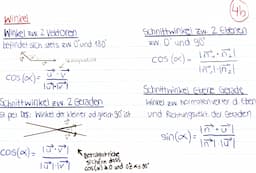 Winkel
4b)
Winkel zw. 2 Vektoren
befindet sich stets zw. 0° und 180°
cos(α) = u⃗ · v⃗ / |u⃗| · |v⃗|
Schnittwinkel zw. 2 Geraden
ist per Def. Winkel der kleiner od. gleich 90° ist
cos(α) = |u⃗ · v⃗| / |u⃗| · |v⃗|
Betragsstriche
sichern, dass
cos(α) ≥ 0 und 0 ≤ α ≤ 90°
Schnittwinkel zw. 2 Ebenen
zw. 0° und 90°
cos(α) = |n₁⃗ · n₂⃗| / |n₁⃗| · |n₂⃗|
Schnittwinkel Ebene Gerade
Winkel zw. Normalenvektor d. Eben
und Richtungsvekt. der Geraden
sin(α) = |n⃗ · u⃗| / |n⃗| · |u⃗|